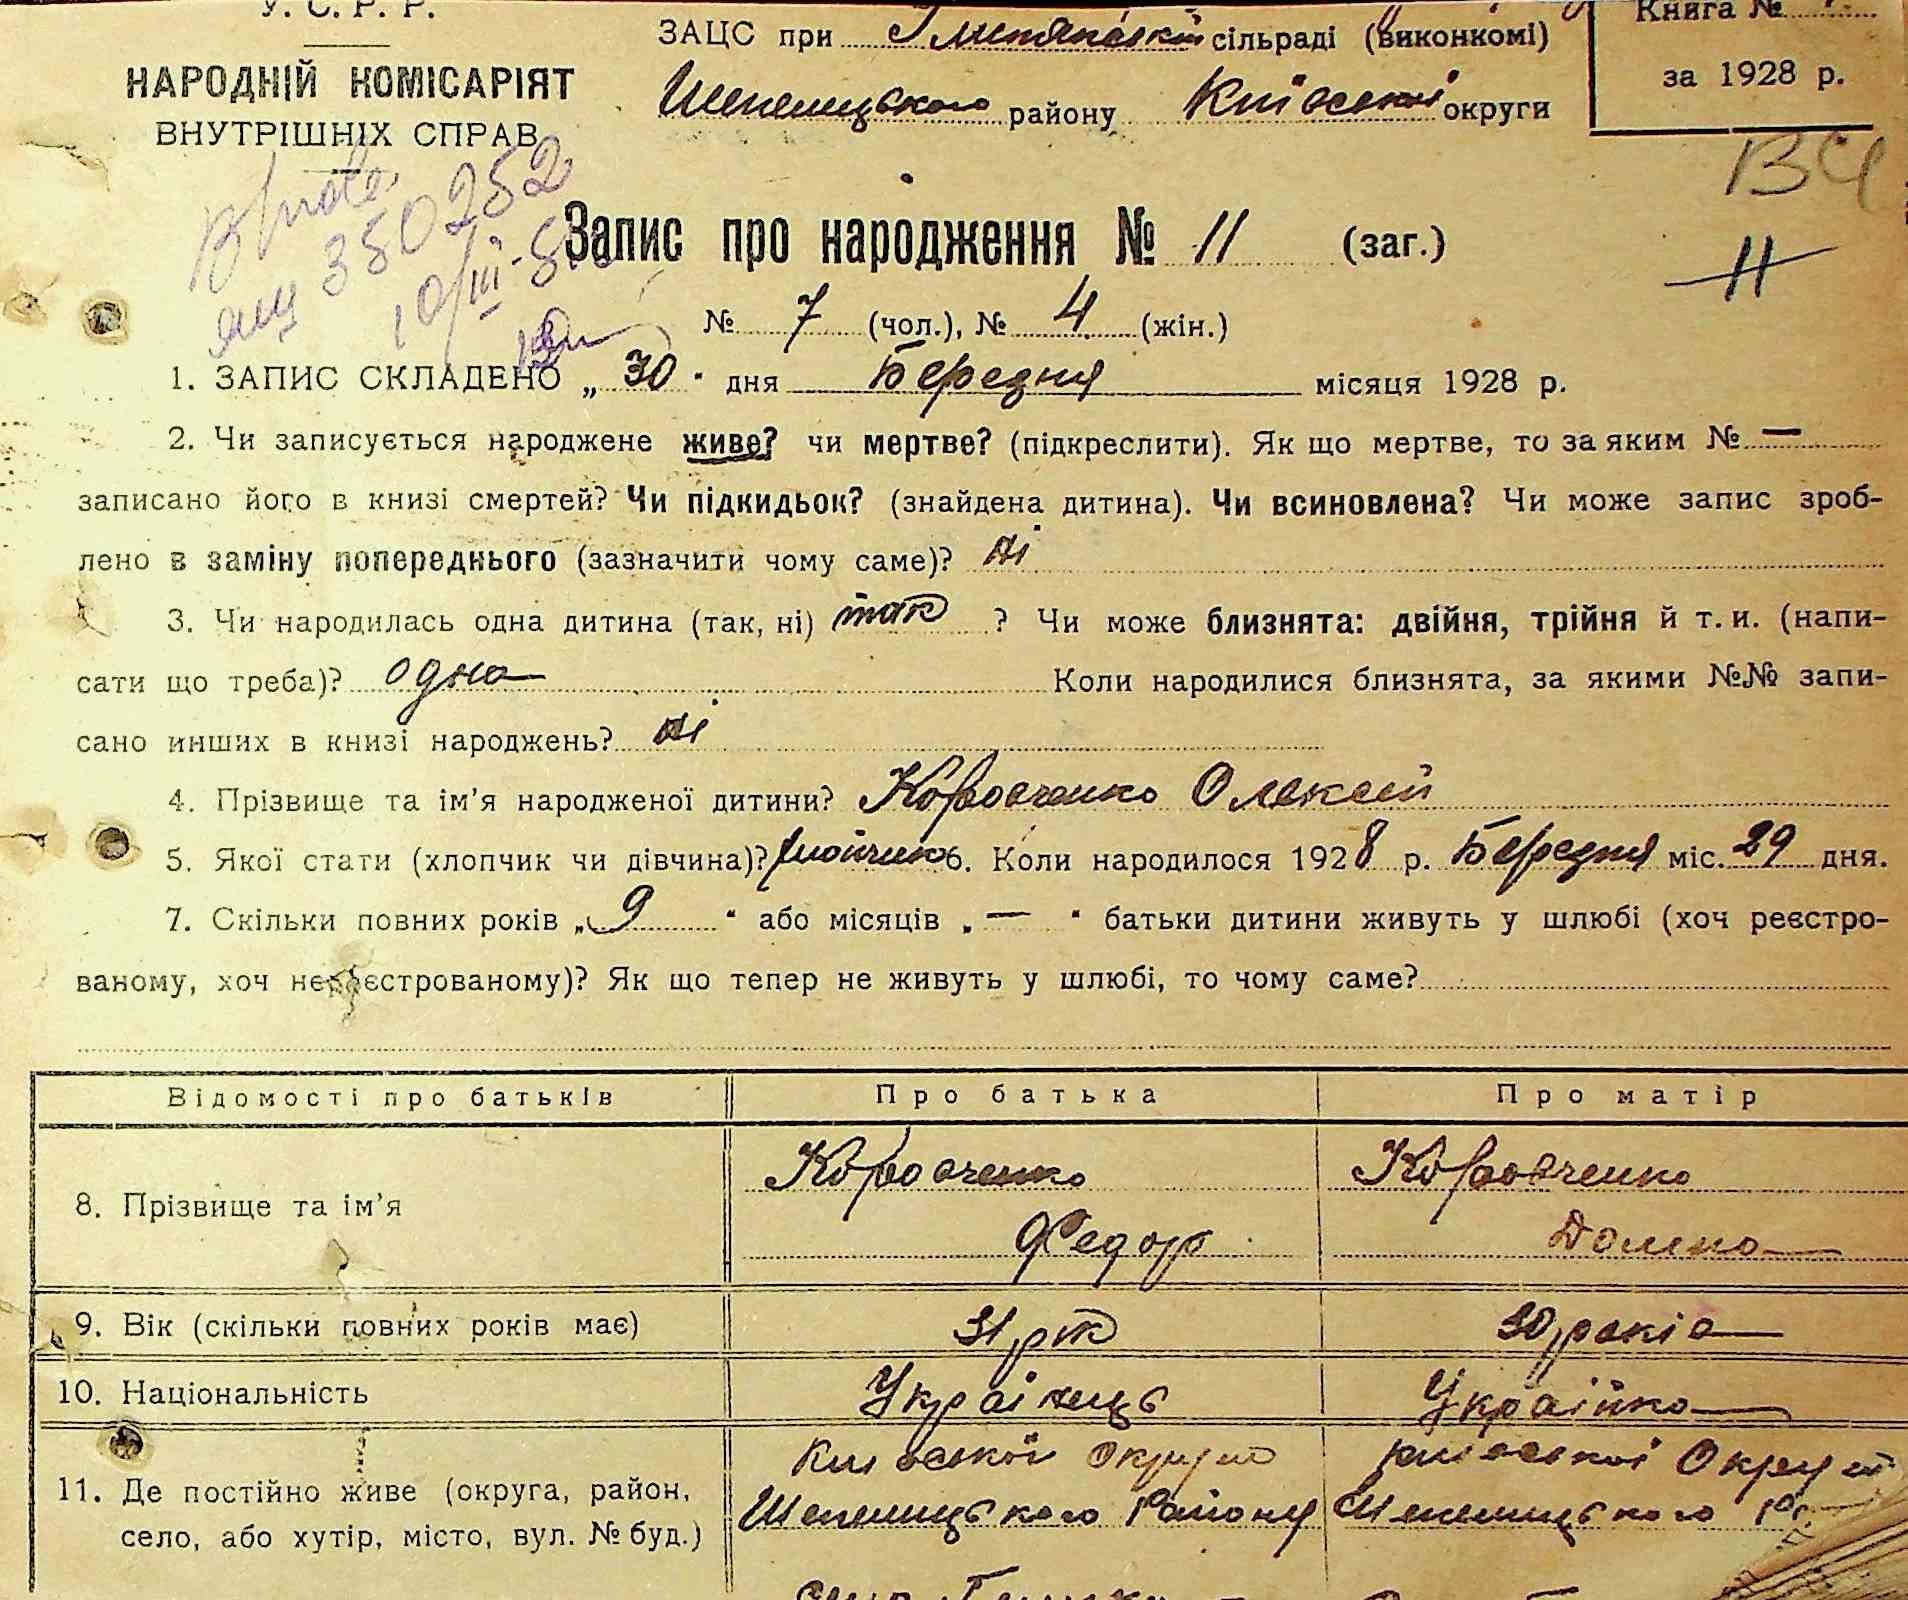 У. С. Р. Р.
НАРОДНІЙ КОМІСАРІЯТ
ВНУТРІШНІХ СПРАВ
ЗАЦС при сільраді (виконкомі)
Шепелицького району Київської округи
Книга №
за 1928 р.
ВЧ
11
350252
Запис про народження № 11 (заг.)
№ 7 (чол.), № 4 (жін.)
1. ЗАПИС СКЛАДЕНО „ 30 " дня Березня місяця 1928 р.
2. Чи записується народжене живе? чи мертве? (підкреслити). Як що мертве, то за яким № —
записано його в книзі смертей? Чи підкидьок? (знайдена дитина). Чи всиновлена? Чи може запис зроб-
лено в заміну попереднього (зазначити чому саме)? ні
3. Чи народилась одна дитина (так, ні) так ? Чи може близнята: двійня, трійня й т. и. (напи-
сати що треба)? одна Коли народилися близнята, за якими №№ запи-
сано инших в книзі народжень? ні
4. Прізвище та ім'я народженої дитини? Коровченко Олексій
5. Якої стати (хлопчик чи дівчина)? хлопчик 6. Коли народилося 1928 р. Березня міс. 29 дня.
7. Скільки повних років „ 9 " або місяців „ — " батьки дитини живуть у шлюбі (хоч реєстро-
ваному, хоч нереєстрованому)? Як що тепер не живуть у шлюбі, то чому саме?
Відомості про батьків Про батька Про матір
8. Прізвище та ім'я Коровченко Коровченко
Федор Домна
9. Вік (скільки повних років має) 31 рік 30 років
10. Національність Українець Українка
11. Де постійно живе (округа, район, Київської Округи Київської Округи
село, або хутір, місто, вул. № буд.) Шепелицького Району Шепелицького Р